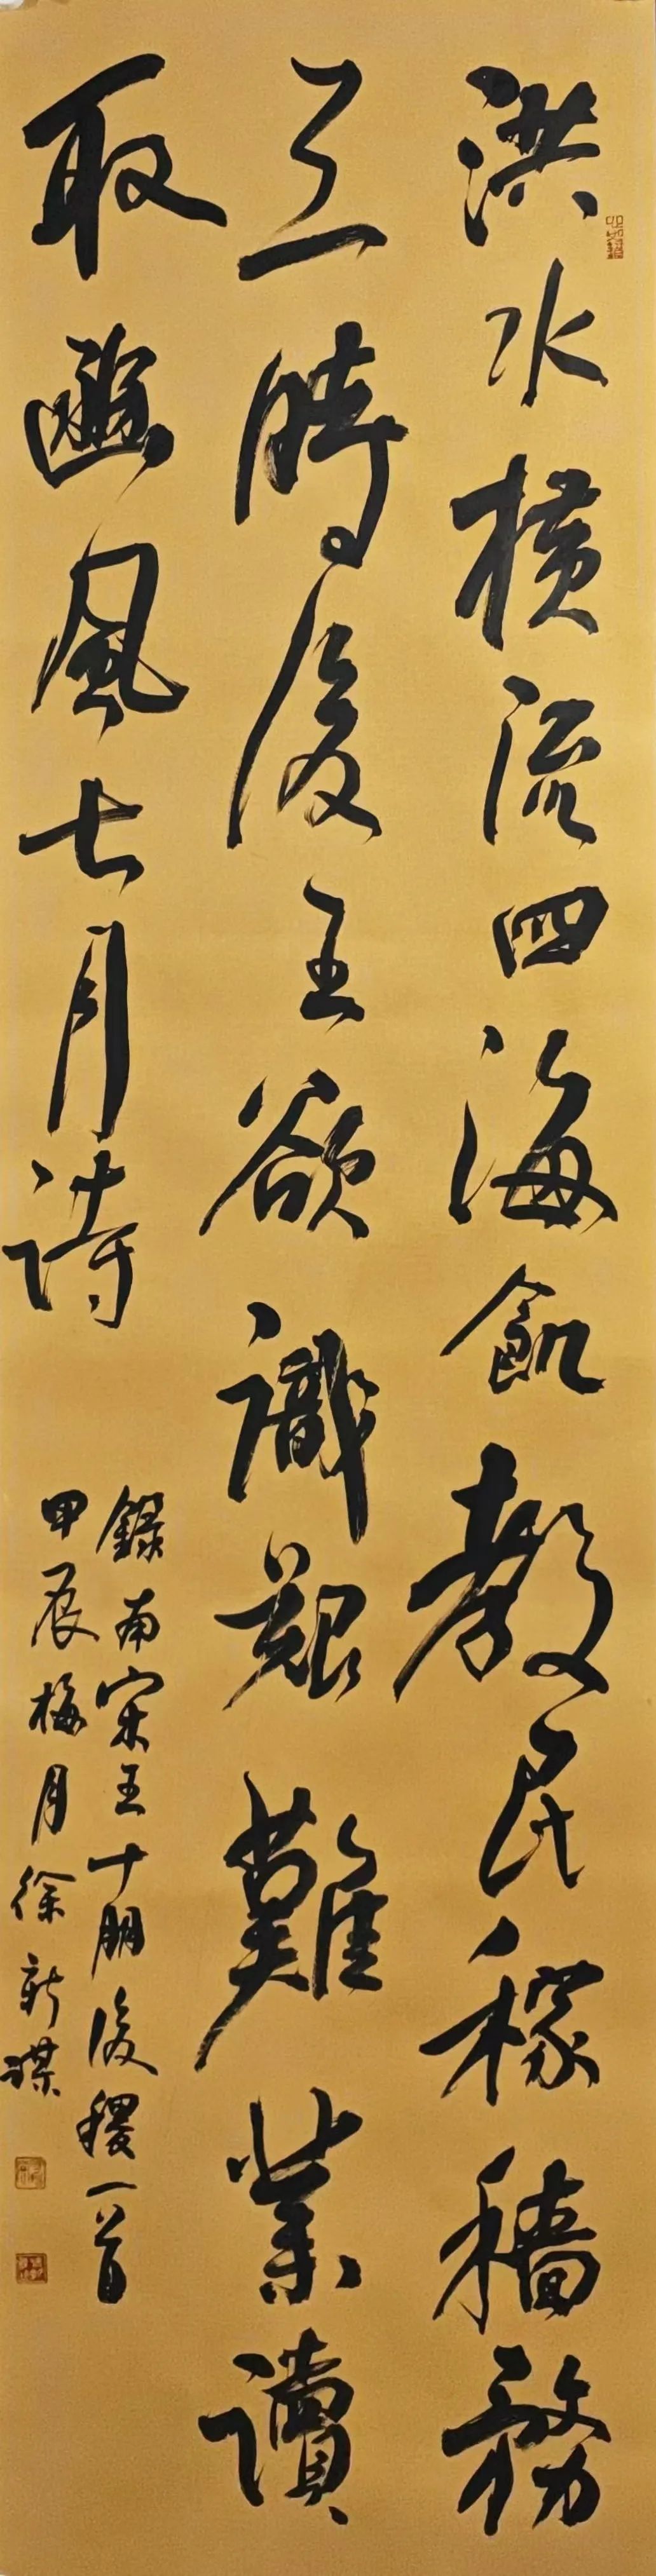 洪水横流四海飢教民稼穡務
三時後王欲識艱難業讀
取豳風七月詩
錄南宋王十朋後稷一首
甲辰梅月徐新謀